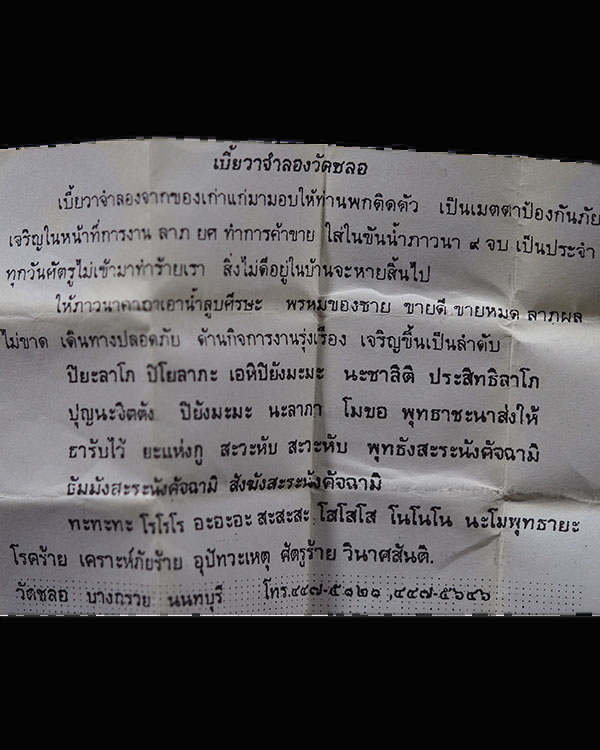 เบี้ยวาจำลองวัดชลอ
เบี้ยวาจำลองจากของเก่าแก่มามอบให้ท่านพกติดตัว เป็นเมตตาป้องกันภัย
เจริญในหน้าที่การงาน ลาภ ยศ ทำการค้าขาย ใส่ในขันน้ำภาวนา ๙ จบ เป็นประจำ
ทุกวันศัตรูไม่เข้ามาทำร้ายเรา สิ่งไม่ดีอยู่ในบ้านจะหายสิ้นไป
ให้ภาวนาคาถาเอาน้ำลูบศีรษะ พรหมของชาย ขายดี ขายหมด ลาภผล
ไม่ขาด เดินทางปลอดภัย ด้านกิจการงานรุ่งเรือง เจริญขึ้นเป็นลำดับ
ปิยะลาโภ ปิโยลาภะ เอหิปิยังมะมะ นะชาลิติ ประสิทธิลาโภ
ปุญนะจิตตัง ปิยังมะมะ นะลาภา โมขอ พุทธาชะนาส่งให้
ธารับไว้ ยะแห่งกู สะวะหับ สะวะหับ พุทธังสะระนังคัจฉามิ
ธัมมังสะระนังคัจฉามิ สังฆังสะระนังคัจฉามิ
ทะทะทะ โรโรโร อะอะอะ สะสะสะ โสโสโส โนโนโน นะโมพุทธายะ
โรคร้าย เคราะห์ภัยร้าย อุปัทวะเหตุ ศัตรูร้าย วินาศสันติ.
วัดชลอ บางกรวย นนทบุรี โทร.๔๔๗-๕๑๒๑ ,๔๔๗-๕๖๔๖